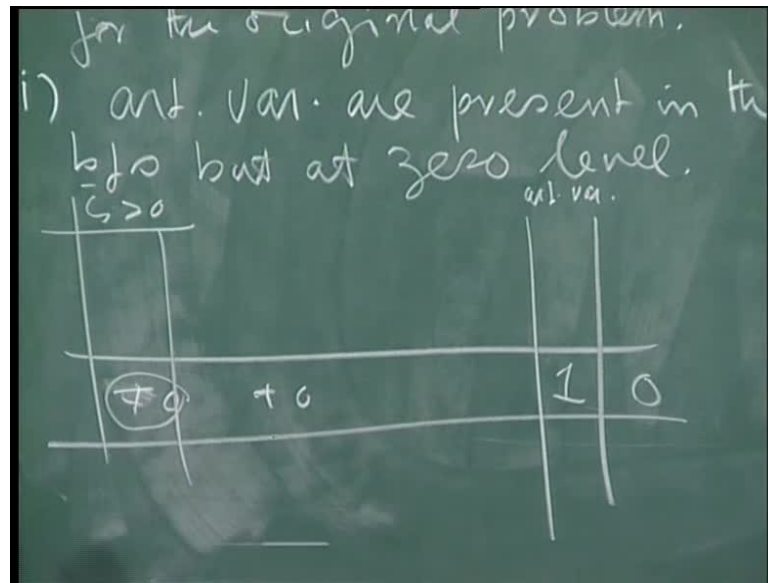 for the original problem.
i) art. var. are present in th
bfs but at zero level.
c̄ > 0
art. var.
≠ 0 ≠ 0 1 0